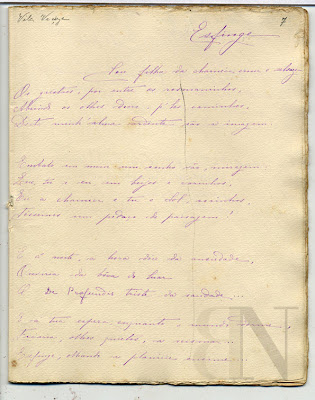 7
Esfinge
Sou filha da charneca erma e selvagem
Os giestais, por entre os rosmaninhos,
Abrindo os olhos d'oiro, p'los caminhos,
Desta minh'alma ardente são a imagem.
Embalo em mim um sonho vão, miragem:
Que tu e eu, em beijos e carinhos,
Eu a charneca e tu o sol, sozinhos,
Fôssemos um pedaço de paisagem!
E à noite, à hora doce da ansiedade,
Ouviria da boca do luar
O De Profundis triste da saudade...
E à tua espera, enquanto o mundo dorme,
Ficaria, olhos quietos, a cismar...
Esfinge, olhando a planície enorme...
BN